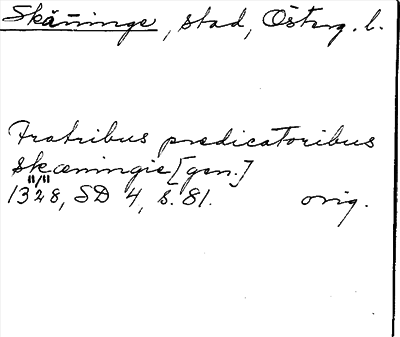 Skänninge, stad, Österg. l.
Fratribus predicatoribus
skæningie [gen.]
1328, SD 4, s. 81. orig.
11/11